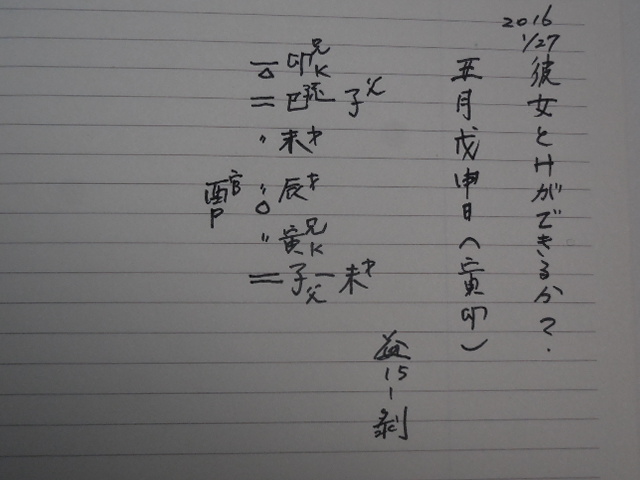 2016
1/27
彼女とHができるか?.
丑月戊申日(寅卯)
卯兄K
巳孫 子父
〃未才
酉官P 〃辰才
〃寅兄K
子父一未才
益
15
剥